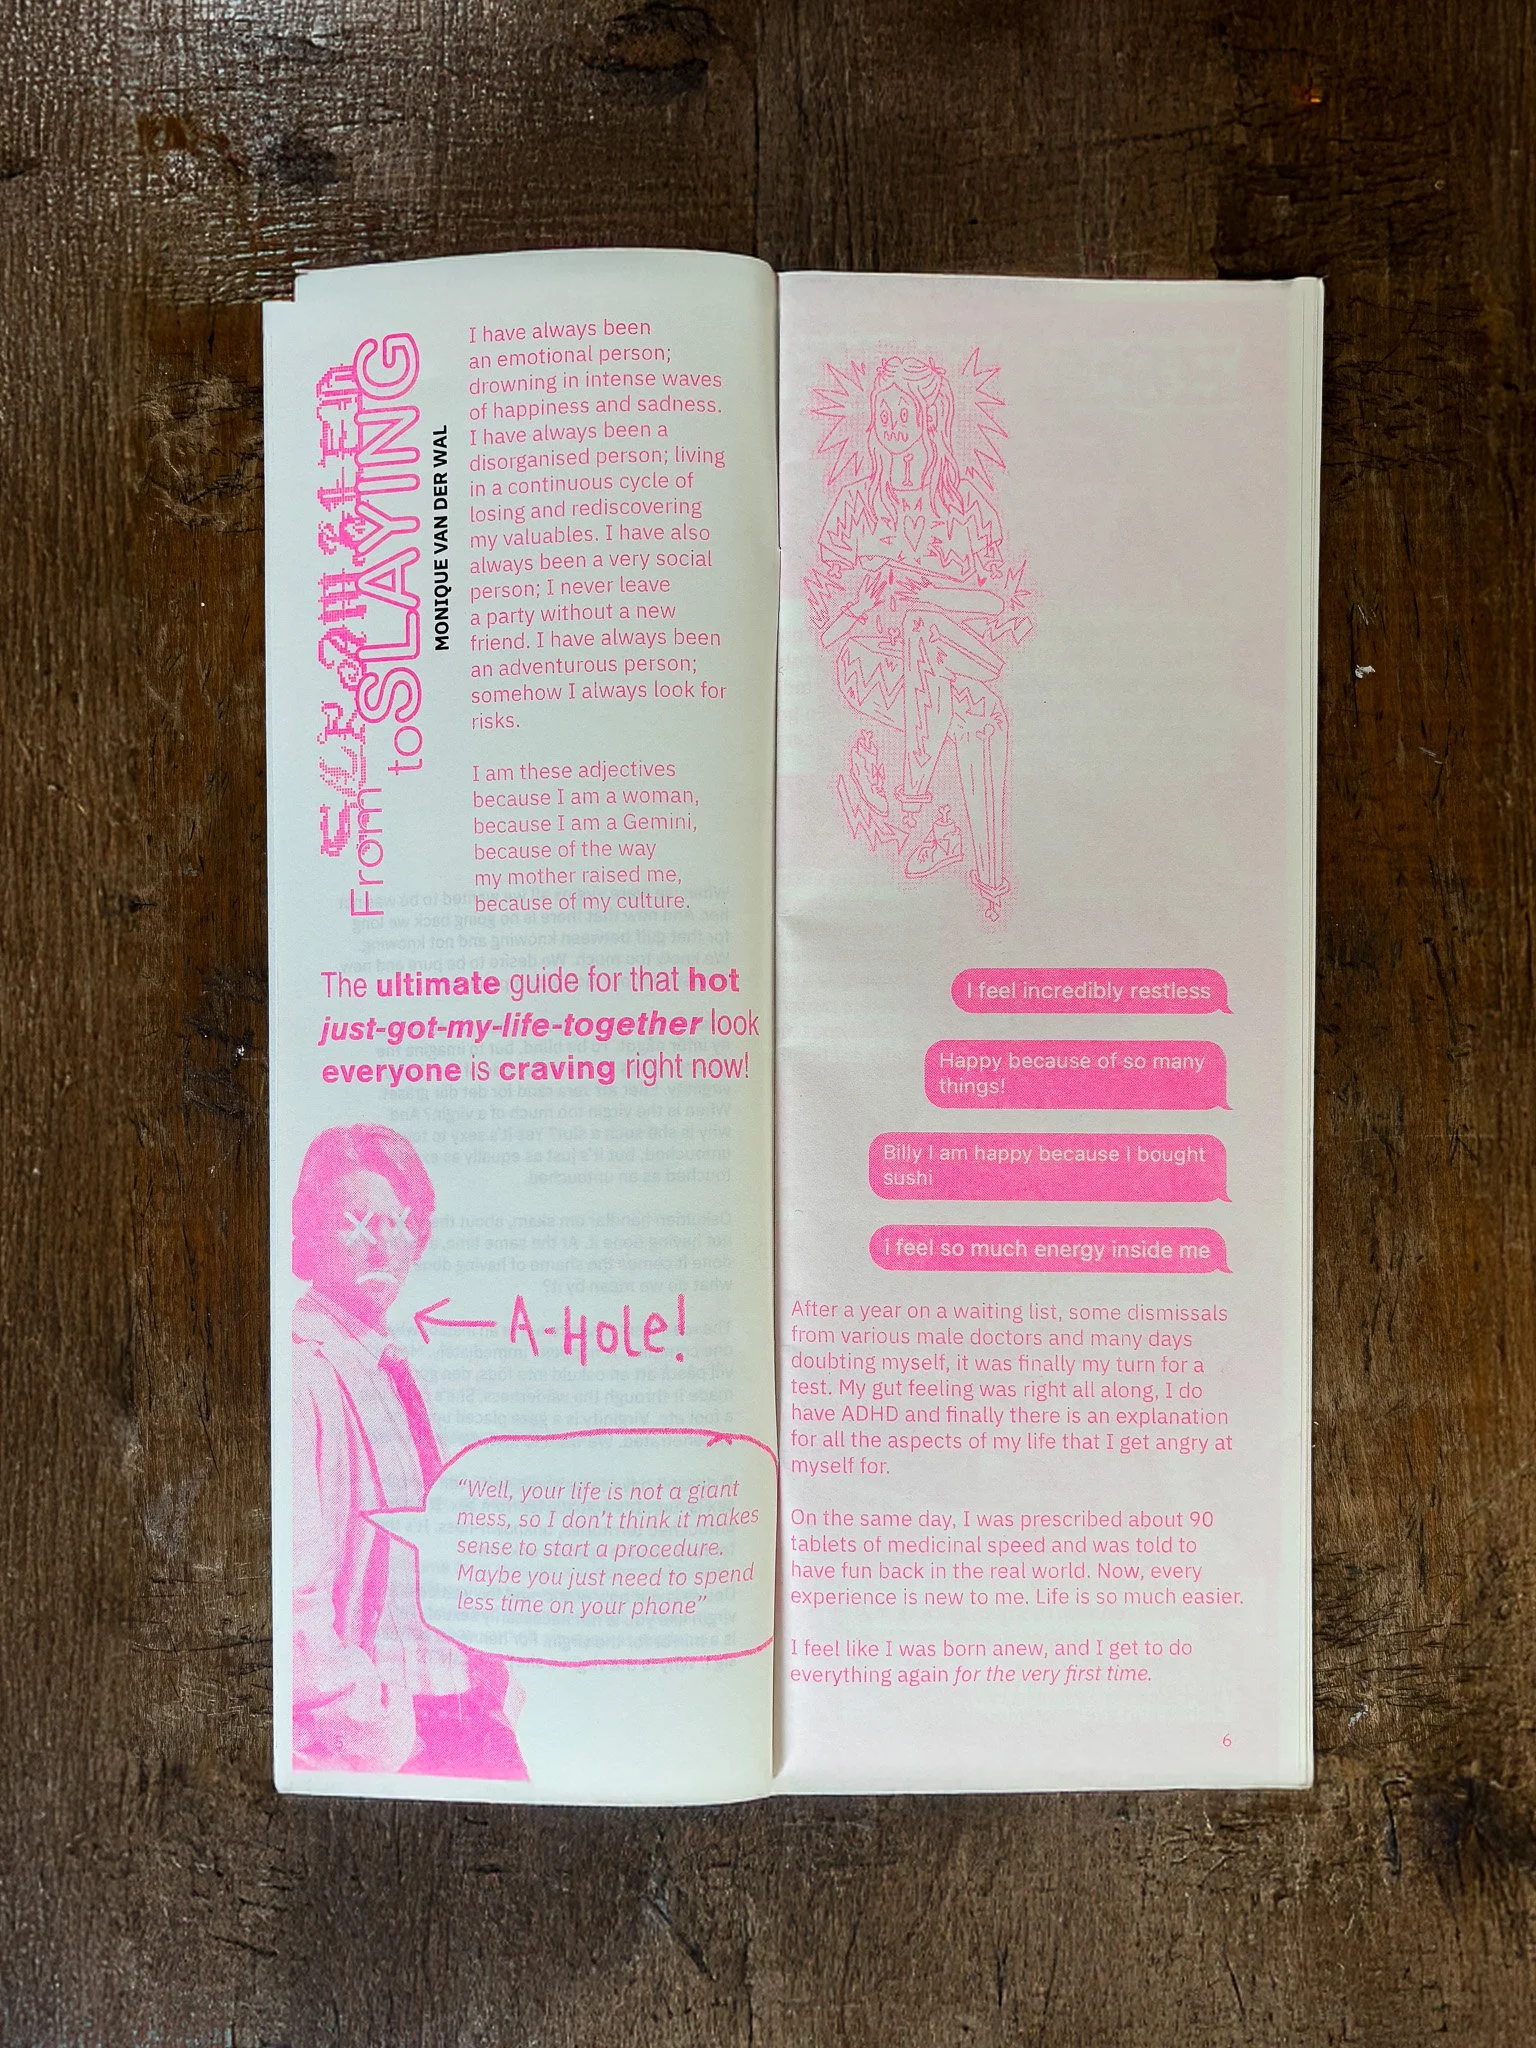 From
to SLAYING
MONIQUE VAN DER WAL
I have always been
an emotional person;
drowning in intense waves
of happiness and sadness.
I have always been a
disorganised person; living
in a continuous cycle of
losing and rediscovering
my valuables. I have also
always been a very social
person; I never leave
a party without a new
friend. I have always been
an adventurous person;
somehow I always look for
risks.
I am these adjectives
because I am a woman,
because I am a Gemini,
because of the way
my mother raised me,
because of my culture.
The ultimate guide for that hot
just-got-my-life-together look
everyone is craving right now!
A-HOLe!
“Well, your life is not a giant
mess, so I don’t think it makes
sense to start a procedure.
Maybe you just need to spend
less time on your phone”
5
I feel incredibly restless
Happy because of so many
things!
Billy I am happy because I bought
sushi
i feel so much energy inside me
After a year on a waiting list, some dismissals
from various male doctors and many days
doubting myself, it was finally my turn for a
test. My gut feeling was right all along, I do
have ADHD and finally there is an explanation
for all the aspects of my life that I get angry at
myself for.
On the same day, I was prescribed about 90
tablets of medicinal speed and was told to
have fun back in the real world. Now, every
experience is new to me. Life is so much easier.
I feel like I was born anew, and I get to do
everything again for the very first time.
6